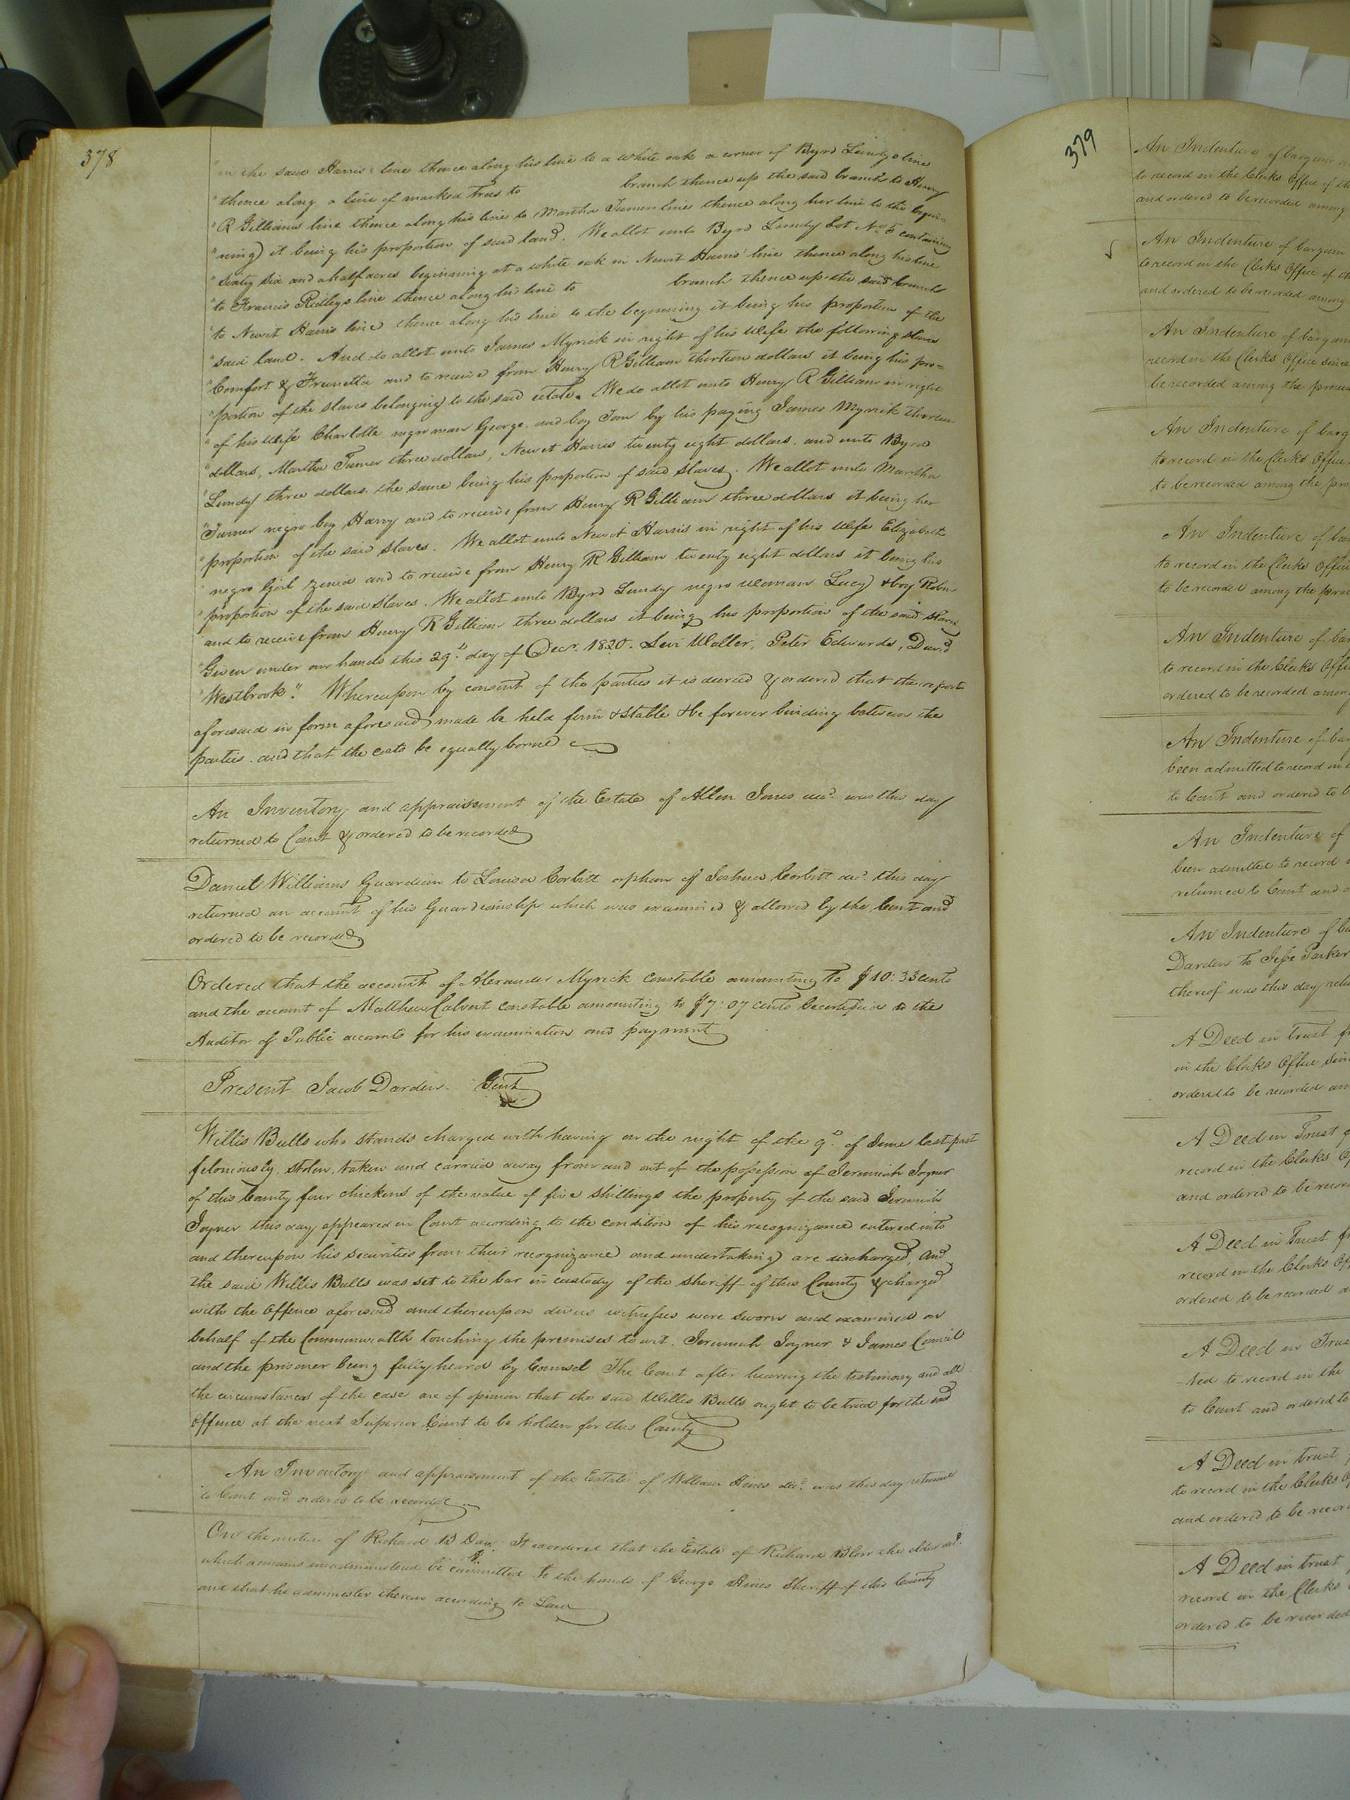 378
"in the said Harris's line thence along his line to a white oak a corner of Byrd Lundy's line
thence along a line of marked trees to branch thence up the said branch to Henry
"R Gilliams line thence along his line to Martha Turners line thence along her line to the begin-
"ning) it being his proportion of said land. We allot unto Byrd Lundy Lot No 6 containing
"sixty six and a half acres beginning at a white oak in Newit Harris' line thence along his line
"to Francis Ridleys line thence along his line to branch thence up the said branch
"to Newit Harris line thence along his line to the beginning it being his proportion of the
"said land. And do allot unto James Myrick in right of his wife the following slaves
"Comfort & and to receive from Henry R Gilliam thirteen dollars it being his pro-
"portion of the slaves belonging to the said estate. We do allot unto Henry R Gilliam in right
"of his wife Charlotte negro man George and boy Tom by his paying James Myrick thirteen
"dollars, Martha Turner three dollars, Newit Harris twenty eight dollars, and unto Byrd
"Lundy three dollars, the same being his proportion of said slaves. We allot unto Martha
"Turner negro boy Harry and to receive from Henry R Gilliam three dollars it being her
"proportion of the said slaves. We allot unto Newit Harris in right of his wife Elizabeth
"negro Girl and to receive from Henry R Gilliam twenty eight dollars it being his
"proportion of the said slaves. We allot unto Byrd Lundy negro woman Lucy & boy Robin
and to receive from Henry R Gilliam three dollars it being his proportion of the said slaves
"Given under our hands this 29th day of Decr. 1820. Levi Waller, Peter Edwards, David
"Westbrook." Whereupon by consent of the parties it is decreed & ordered that the report
aforesaid in form aforesaid made be held firm & stable & be forever binding between the
parties and that the costs be equally borne
An Inventory and appraisement of the Estate of Allen Jones decd. was this day
returned to Court & ordered to be recorded
Daniel Williams Guardian to Louisa Corbitt orphan of Joshua Corbitt decd. this day
returned an account of his Guardianship which was examined & allowed by the Court and
ordered to be recorded
Ordered that the account of Alexander Myrick constable amounting to $10:33 cents
and the account of Matthew Calvert constable amounting to $7:07 cents be certified to the
Auditor of Public accounts for his examination and payment
Present Jacob Darden Gent
Willis Bulls who stands charged with having on the night of the 9th of June last past
feloniously stolen, taken and carried away from and out of the possession of Jeremiah Joyner
of this County four chickens of the value of five shillings the property of the said Jeremiah
Joyner this day appeared in Court according to the condition of his recognizance entered into
and thereupon his securities from their recognizance and undertaking) are discharged, and
the said Willis Bulls was set to the bar in custody of the Sheriff of this County & charged
with the offence aforesaid and thereupon divers witnesses were sworn and examined on
behalf of the Commonwealth touching the premises to wit. Jeremiah Joyner & James Council
and the prisoner being fully heard by Counsel The Court after hearing the testimony and all
the circumstances of the case are of opinion that the said Willis Bulls ought to be tried for the said
offence at the next Superior Court to be holden for this County
An Inventory and appraisement of the Estate of William Hines decd. was this day returned
to Court and ordered to be recorded
On the motion of Richard B Day. It is ordered that the Estate of Richard Blow the elder decd.
which remains unadministered be committed to the hands of George Hines Sheriff of this County
and that he administer thereon according to Law
379
An Indenture of bargain
to record in the Clerks Office of the
and ordered to be recorded among
An Indenture of bargain
to record in the Clerks Office of the
and ordered to be recorded among
An Indenture of bargain
record in the Clerks Office since
be recorded among the
An Indenture of barg
to record in the Clerks Office
to be recorded among the pro
An Indenture of bar
to record in the Clerks Office
to be recorded among the
An Indenture of bar
to record in the Clerks Office
ordered to be recorded among
An Indenture of ba
been admitted to record in
to Court and ordered to b
An Indenture of
been admitted to record
returned to Court and o
An Indenture of ba
Darden to Jesse Parker
thereof was this day
A Deed in trust f
in the Clerks Office sin
ordered to be recorded am
A Deed in Trust
record in the Clerks O
and ordered to be recor
A Deed in Trust f
record in the Clerks Off
ordered to be recorded a
A Deed in Trus
-ted to record in the
to Court and ordered to
A Deed in trust
to record in the Clerks O
and ordered to be recor
A Deed in trust
record in the Clerks
ordered to be recorded